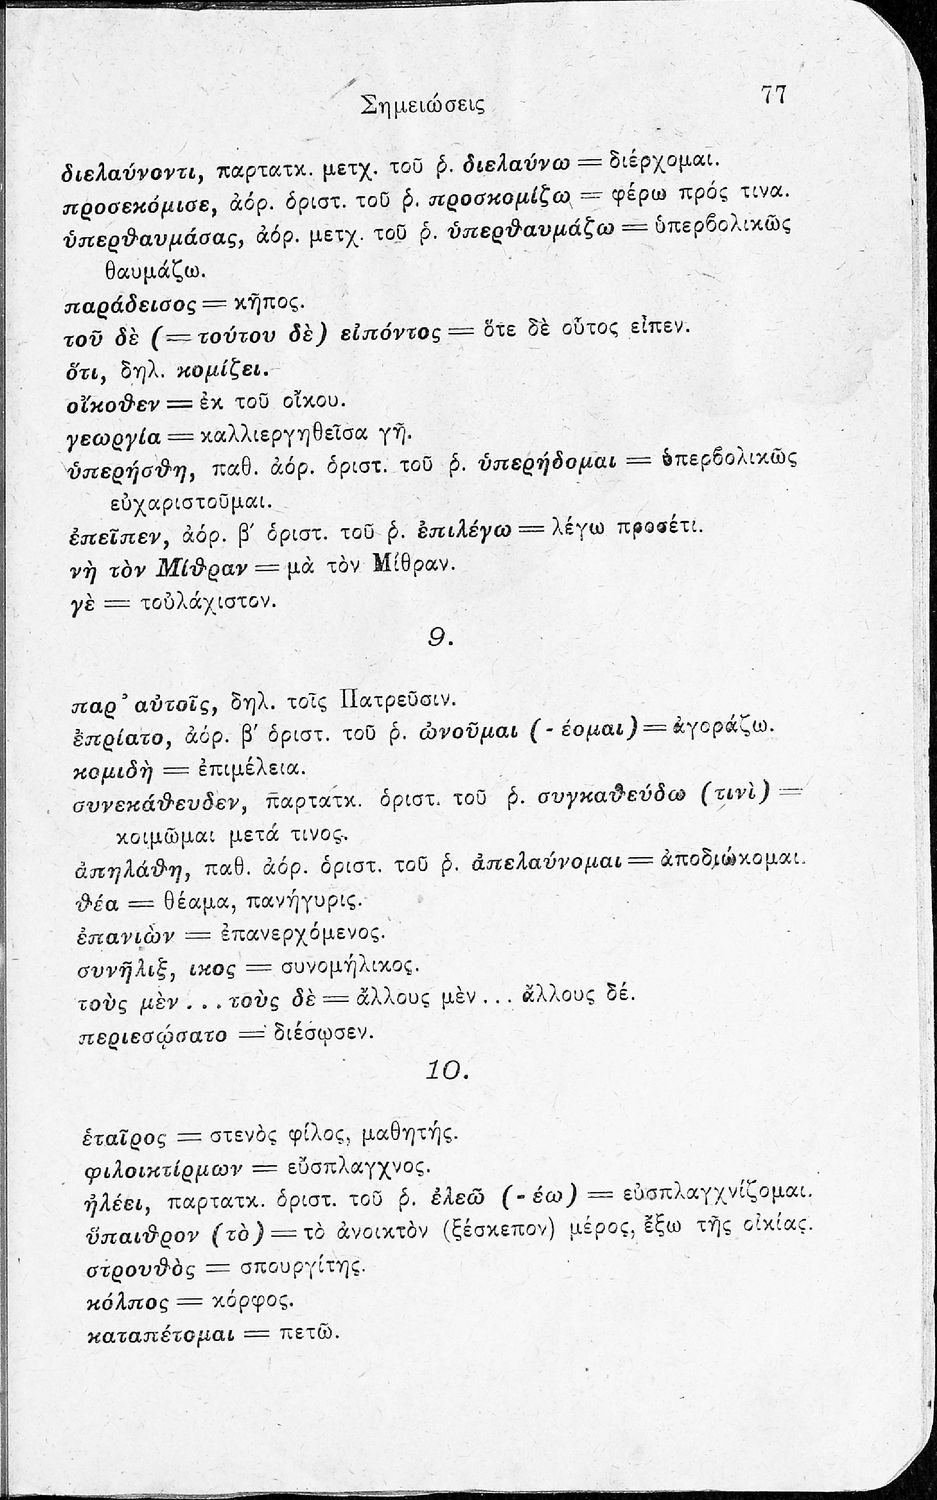 Σημειώσεις
77
διελαύνοντι, παρτατκ. μετχ. τοῦ ῥ. διελαύνω = διέρχομαι.
προσεκόμισε, ἀόρ. ὁριστ. τοῦ ῥ. προσκομίζω = φέρω πρός τινα.
ὑπερθαυμάσας, ἀόρ. μετχ. τοῦ ῥ. ὑπερθαυμάζω = ὑπερβολικῶς
θαυμάζω.
παράδεισος = κῆπος.
τοῦ δὲ (= τούτου δὲ) εἰπόντος = ὅτε δὲ οὗτος εἶπεν.
ὅτι, δηλ. κομίζει.
οἴκοθεν = ἐκ τοῦ οἴκου.
γεωργία = καλλιεργηθεῖσα γῆ.
ὑπερήσθη, παθ. ἀόρ. ὁριστ. τοῦ ῥ. ὑπερήδομαι = ὑπερβολικῶς
εὐχαριστοῦμαι.
ἐπεῖπεν, ἀόρ. β' ὁριστ. τοῦ ῥ. ἐπιλέγω = λέγω προσέτι.
νὴ τὸν Μίθραν = μὰ τὸν Μίθραν.
γὲ = τοὐλάχιστον.
9.
παρ' αὐτοῖς, δηλ. τοῖς Πατρεῦσιν.
ἐπρίατο, ἀόρ. β' ὁριστ. τοῦ ῥ. ὠνοῦμαι (-έομαι) = ἀγοράζω.
κομιδὴ = ἐπιμέλεια.
συνεκάθευδεν, παρτατκ. ὁριστ. τοῦ ῥ. συγκαθεύδω (τινὶ) =
κοιμῶμαι μετά τινος.
ἀπηλάθη, παθ. ἀόρ. ὁριστ. τοῦ ῥ. ἀπελαύνομαι = ἀποδιώκομαι.
θέα = θέαμα, πανήγυρις.
ἐπανιὼν = ἐπανερχόμενος.
συνῆλιξ, ικος = συνομήλικος.
τοὺς μὲν... τοὺς δὲ = ἄλλους μὲν... ἄλλους δέ.
περιεσῴσατο = διέσῳσεν.
10.
ἑταῖρος = στενὸς φίλος, μαθητής.
φιλοικτίρμων = εὔσπλαγχνος.
ἠλέει, παρτατκ. ὁριστ. τοῦ ῥ. ἐλεῶ (-έω) = εὐσπλαγχνίζομαι.
ὕπαιθρον (τὸ) = τὸ ἀνοικτὸν (ξέσκεπον) μέρος, ἔξω τῆς οἰκίας.
στρουθὸς = σπουργίτης.
κόλπος = κόρφος.
καταπέτομαι = πετῶ.